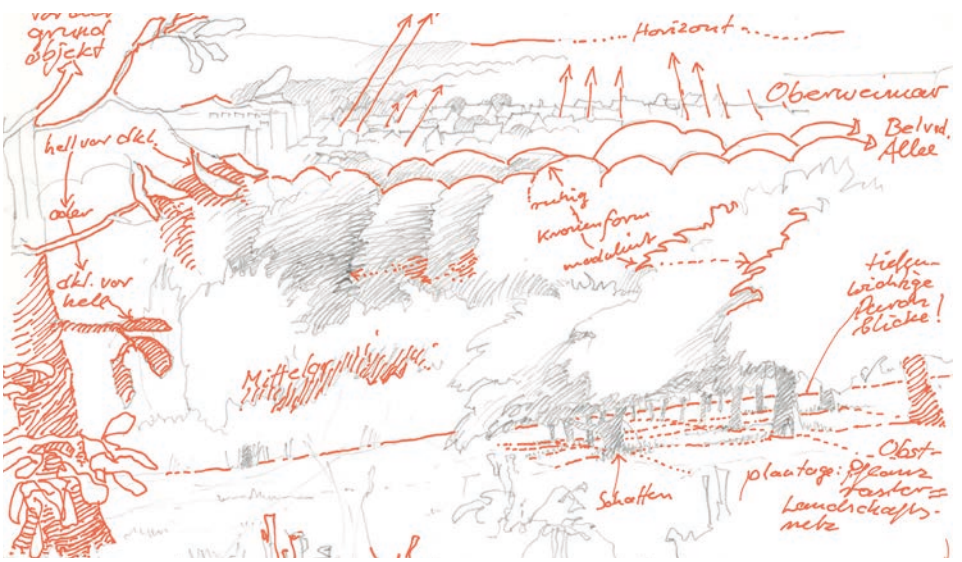 Vorder
grund
objekt
Horizont
Oberweimar
Belved.
Allee
hell vor dkl.
oder
dkl. vor
hell
ruhig
Kronenform
moduliert
tiefen-
wichtige
Durch
blicke!
Mittelgr
Schatten
Obst-
plantage: Pflanz
raster =
Landschafts-
netz